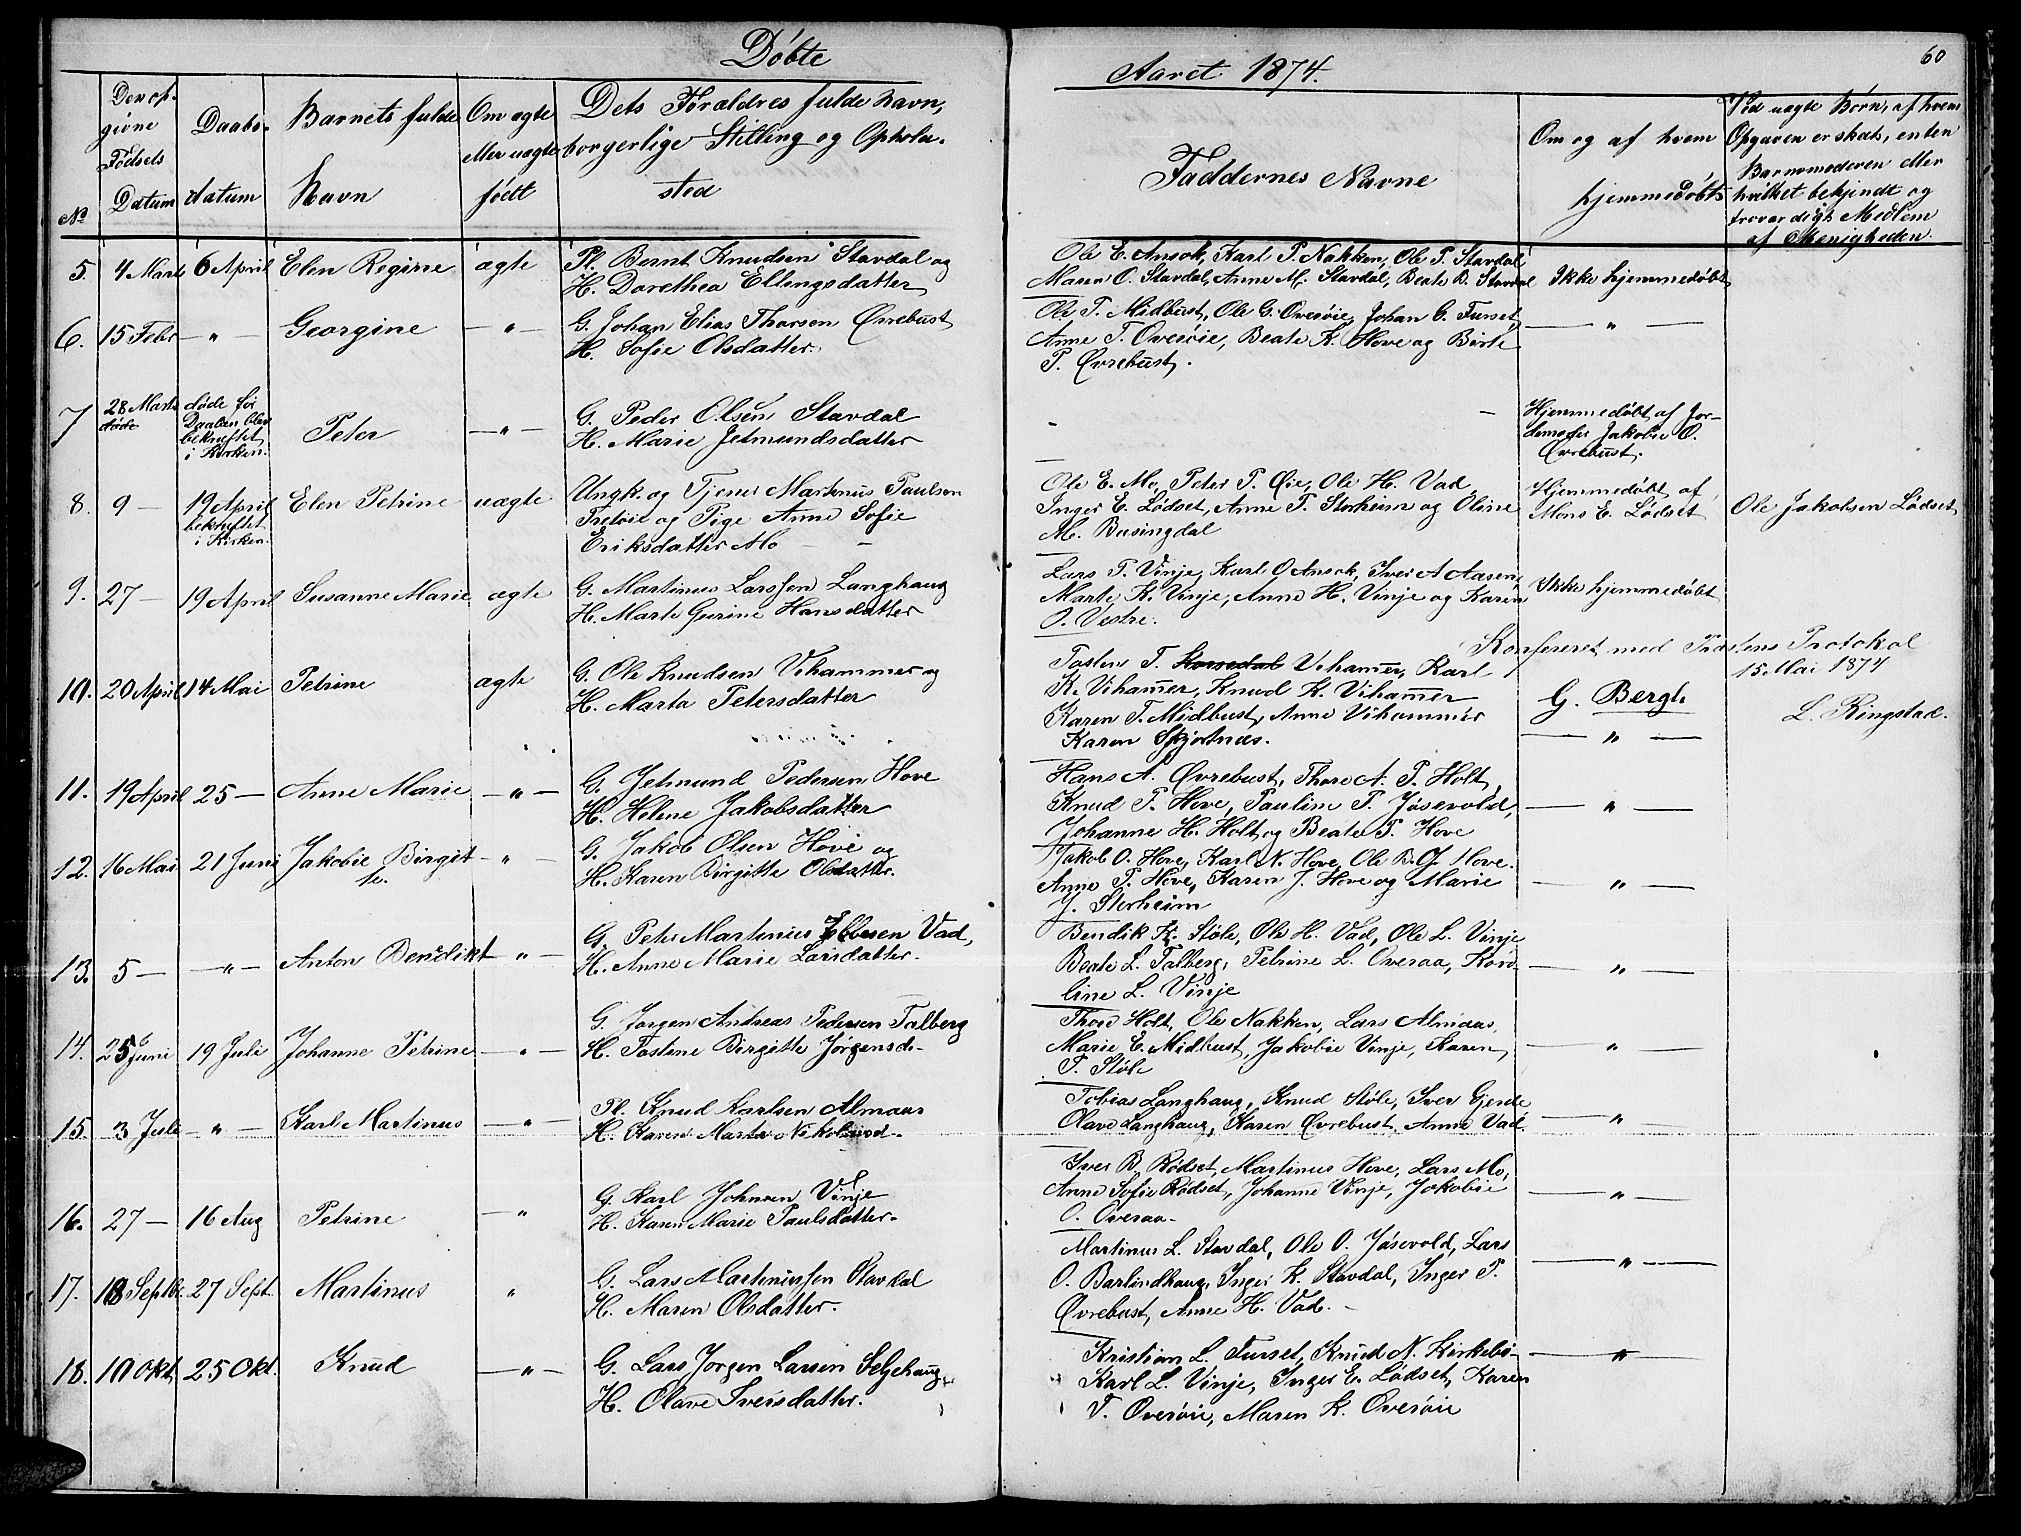 Døbte
Aaret 1874.
60
No
Den op-
givne
Fødsels
Datum
Daabs-
datum
Barnets fulde
Navn
Om ægte
eller uægte
født
Dets Forældres fulde Navn,
borgerlige Stilling og Opholds-
sted
Faddernes Navne
Om og af hvem
hjemmedøbt
Ved uægte Børn, af hvem
Opgaven er skeet, enten
Barnemoderen eller
hvilket bekjendt og
troværdigt Medlem
af Menigheden.
5 4 Marts 6 April Elen Regine ægte Pl. Bernt Knudsen Stavdal og
H. Dorethea Ellingsdatter
Ole E. Ansok, Karl P. Nakken, Ole P. Stavdal
Maren O. Stavdal, Anne M. Stavdal, Beate B. Stavdal
Ikke hjemmedøbt
6. 15 Febr — " — Georgine — " — G. Johan Elias Thorsen Øvrebust
H. Sofie Olsdatter.
Ole T. Midbust, Ole G. Overøie, Johan C. Furset,
Anne T. Overøie, Beate K. Hove og Birte
T. Øvrebust.
— " —
7 28 Marts
døde
døde før
Daaben blev
bekræftet
i Kirken.
Peter — " — G. Peder Olsen Stavdal
H. Marie Jetmundsdatter
Hjemmedøbt af Jor-
demoder Jakobie O.
Øvrebust.
8. 9 — 19 April
bekræftet
i Kirken.
Elen Petrine uægte Ungk. og Tjener Martinus Paulsen
Tretøie og Pige Anne Sofie
Eriksdatter Mo — —
Ole E. Mo, Peter P. Øie, Ole H. Vad
Inger E. Lødset, Anne T. Storheim og Oline
M. Busingdal
Hjemmedøbt af
Mons E. Lødset
Ole Jakobsen Lødset
9. 27 — 19 April Susanne Marie ægte G. Martinus Larssen Langhaug
H. Marte Gurine Hansdatter
Lars T. Vinje, Karl O Ansok, Iver A Aasen,
Marte K. Vinje, Anne H. Vinje og Karen
O. Vestre.
Ikke hjemmedøbt
Konfereret med Prostens Protokol
15. Mai 1874
G. Bergh
L. Ringstad.
10. 20 April 14 Mai Petrine ægte G. Ole Knudsen Vihammer og
H. Marta Petersdatter
Tosten T. Vihammer, Karl
K. Vihammer, Knud K. Vihammer
Karen T. Midbust, Anne Vihammer
Karen Skjortnæs.
— " —
11. 19 April 25 — Anne Marie — " — G. Jetmund Pedersen Hove
H. Helene Jakobsdatter
Hans A. Øvrebust, Thore A. P. Holt,
Knud P. Hove, Pauline P. Jøsevold,
Johanne H. Holt og Beate P. Hove
— " —
12. 16 Mai 21 Juni Jakobie Birgit-
te. — " — G. Jakob Olsen Hove og
H. Karen Birgitte Olsdatter.
Jakob O. Hove, Karl N. Hove, Ole B. J. Hove.
Anne P. Hove, Karen J. Hove og Marie
J. Storheim
— " —
13. 5 — — " — Anton Bendikt — " — G. Peter Martinus Ellesen Vad,
H. Anne Marie Larsdatter.
Bendik K. Støle, Ole H. Vad, Ole L. Vinje
Beate L. Talberg, Petrine L. Overaa, Karo-
line L. Vinje
— " —
14. 25 Juni 19 Juli Johanne Petrine — " — G. Jørgen Andreas Pedersen Talberg
H. Tostene Birgitte Jørgensd.
Thore Holt, Ole Nakken, Lars Almaas,
Marie E. Midbust, Jakobie Vinje, Karen
T. Støle
— " —
15. 3 Juli — " — Karl Martinus — " — Pl. Knud Karlsen Almaas
H. Karen Marta Nikolaisd.
Tobias Langhaug, Knud Støle, Iver Gjerde
Olave Langhaug, Karen Øvrebust, Anne Vad.
— " —
16. 27 — 16 Aug Petrine — " G. Karl Johnsen Vinje
H. Karen Marie Paulsdatter.
Iver B. Rødset, Martinus Hove, Lars Mo,
Anne Sofie Rødset, Johanne Vinje, Jakobie
O. Overaa.
— " —
17. 18 Septbr. 27 Sept. Martinus " G. Lars Martinussen Stavdal
H. Maren Olsdatter.
Martinus L. Stavdal, Ole O. Jøsevold, Lars
O. Barlindhaug, Inger K. Stavdal, Inger P.
Øvrebust, Anne H. Vad.
— " —
18. 10 Okt. 25 Okt. Knud — " — G. Lars Jørgen Larsen Selgehaug
H. Olave Iversdatter.
Kristian L. Furset, Knud N. Kirkebø
Karl L. Vinje, Inger E. Lødset, Karen
T. Overøie, Maren K. Overøie
— " —